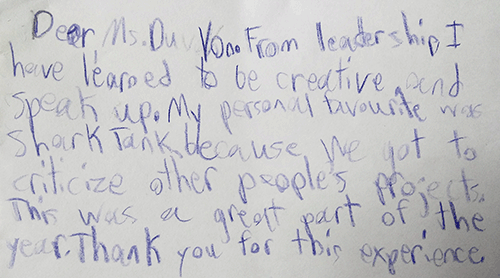 Dear Ms. Du Von. From leadership I
have learned to be creative and
speak up. My personal favourite was
Shark Tank because we got to
criticize other people's projects.
This was a great part of the
year. Thank you for this experience.